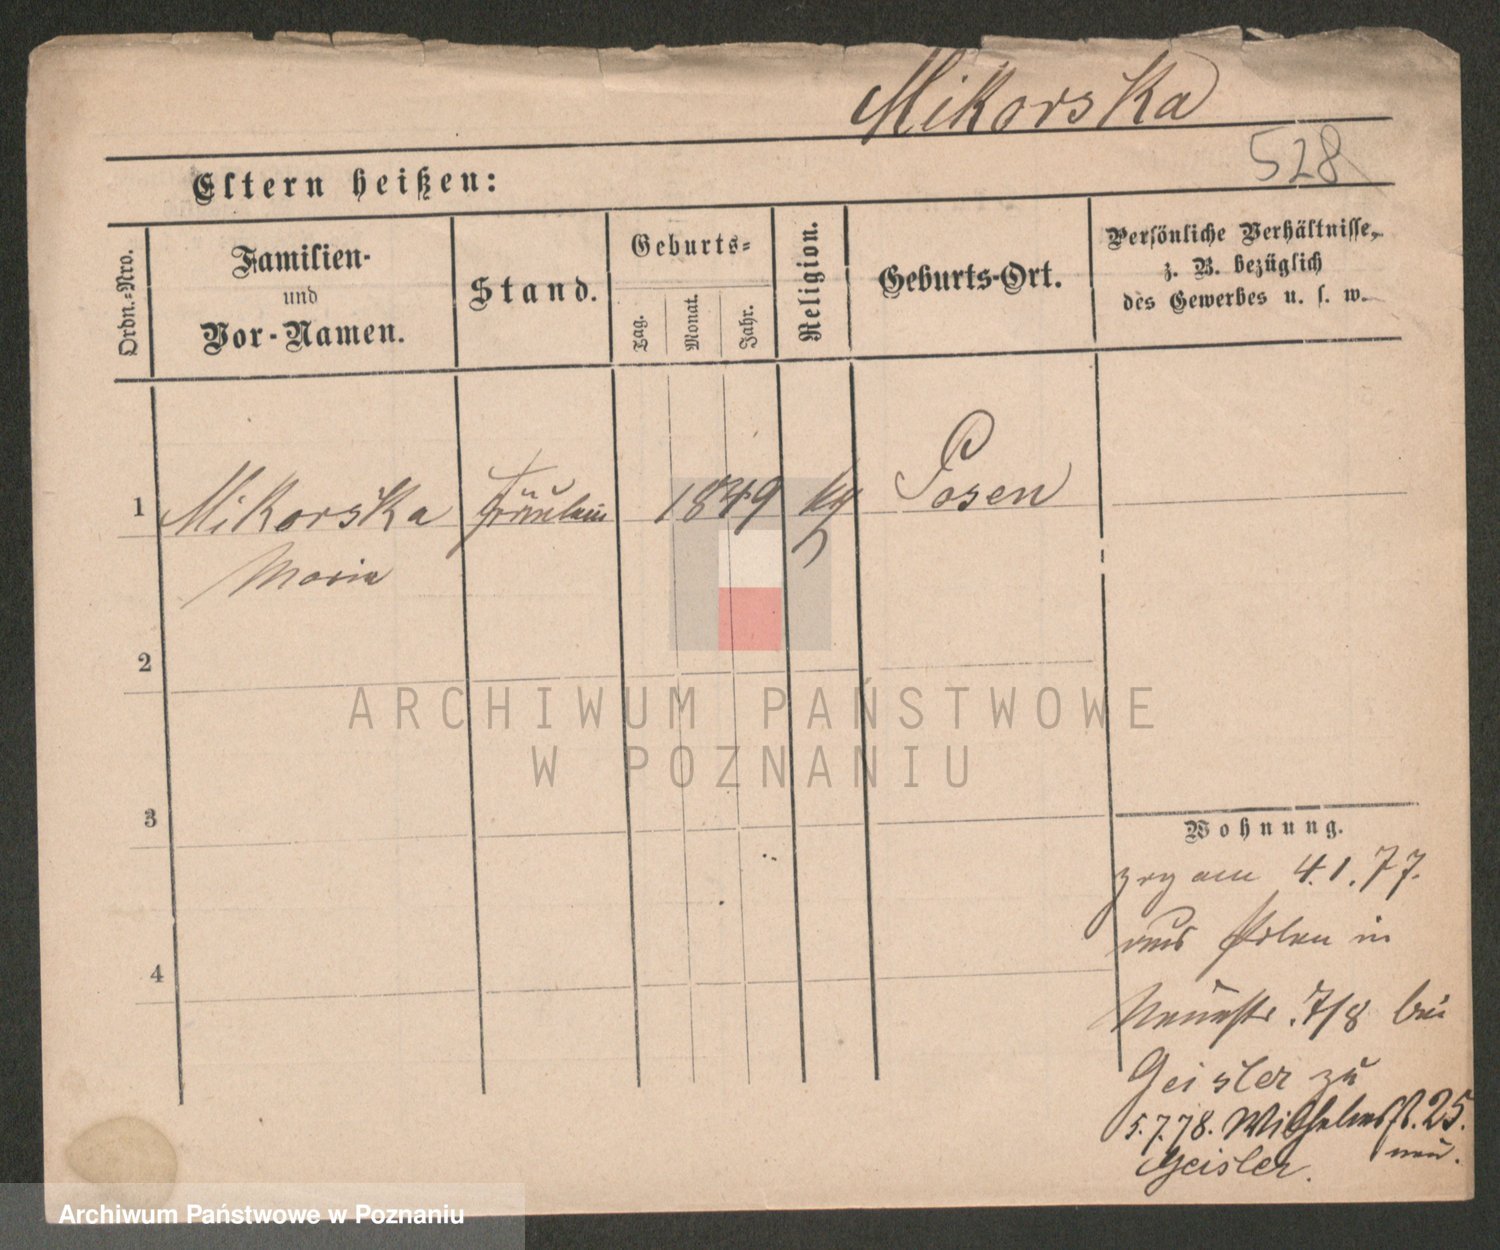 Mikorska
528
Eltern heißen:
Ordn.-Nro.
Familien-
und
Vor-Namen.
Stand.
Geburts-
Tag.
Monat.
Jahr.
Religion.
Geburts-Ort.
Persönliche Verhältnisse,
z. B. bezüglich
des Gewerbes u. s. w.
1
Mikorska Fräulein 1849 Posen
Maria
2
3
4
Wohnung.
am 4.1.77.
aus Polen in
Neuestr. 7/8 bei
Geisler zu
5.7.78. Wilhelmsst. 25.
Geisler.
ARCHIWUM PAŃSTWOWE
W POZNANIU
Archiwum Państwowe w Poznaniu